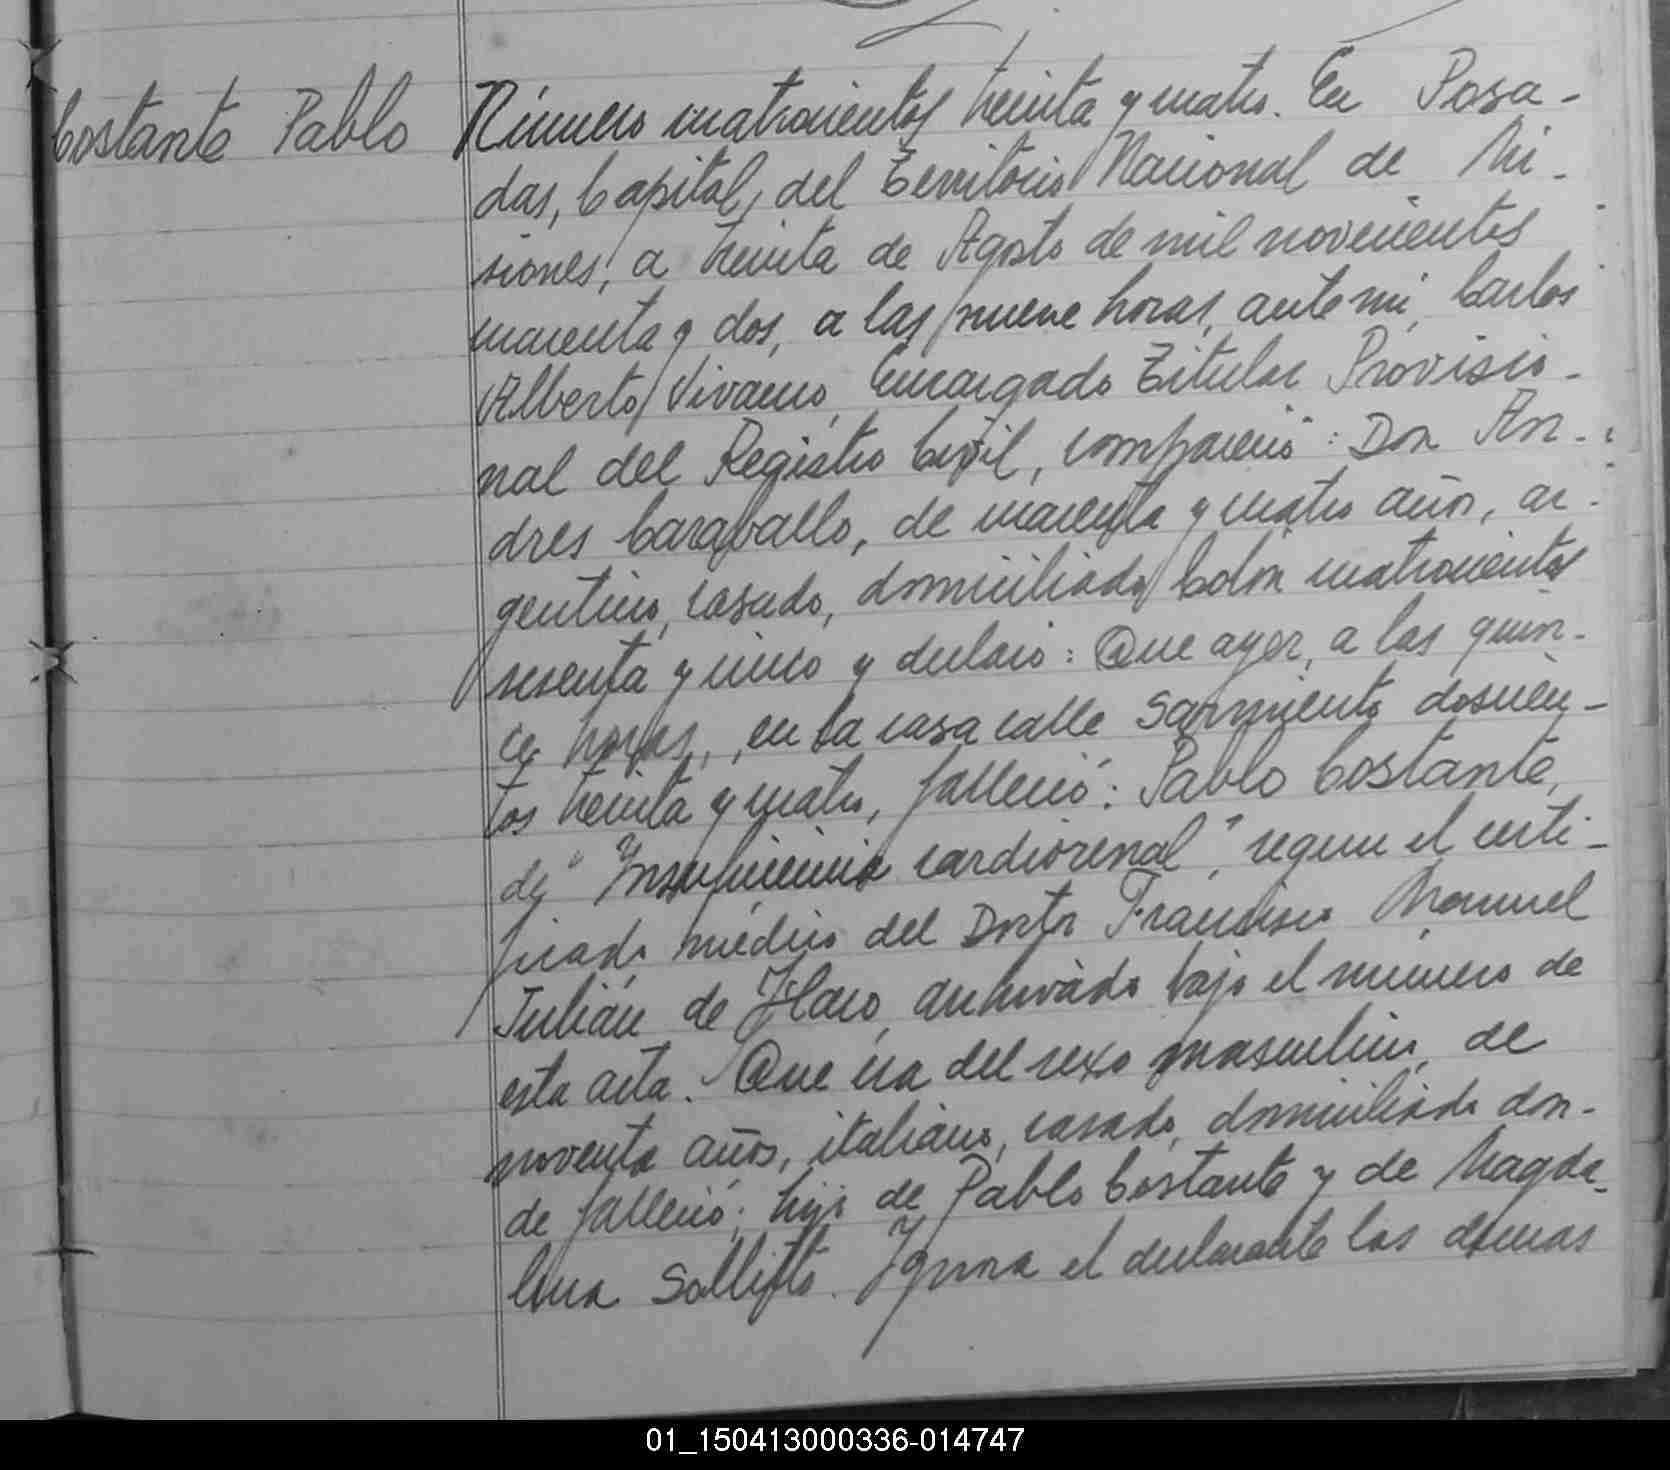 Costante Pablo
Número cuatrocientos treinta y cuatro. En Posa-
das, Capital del Territorio Nacional de Mi-
siones, a treinta de Agosto de mil novecientos
cuarenta y dos, a las nueve horas, ante mi, Carlos
Alberto Vivanco, Encargado Titular Provisio-
nal del Registro Civil, compareció: Don An-
dres Caraballo, de cuarenta y cuatro años, ar-
gentino, casado, domiciliado Colon cuatrocientos
sesenta y cinco y declaró: Que ayer, a las quin-
ce horas, en la casa calle Sarmiento doscien-
tos treinta y cuatro, falleció: Pablo Costante,
de "Insuficiencia cardiorenal", segun el certi-
ficado médico del Doctor Francisco Manuel
Julián de Haro, archivado bajo el número de
esta acta. Que era del sexo masculino, de
noventa años, italiano, casado, domiciliado don-
de falleció; hijo de Pablo Costante y de Magda-
lena Sollitto. Ignora el declarante las demas
01_150413000336-014747